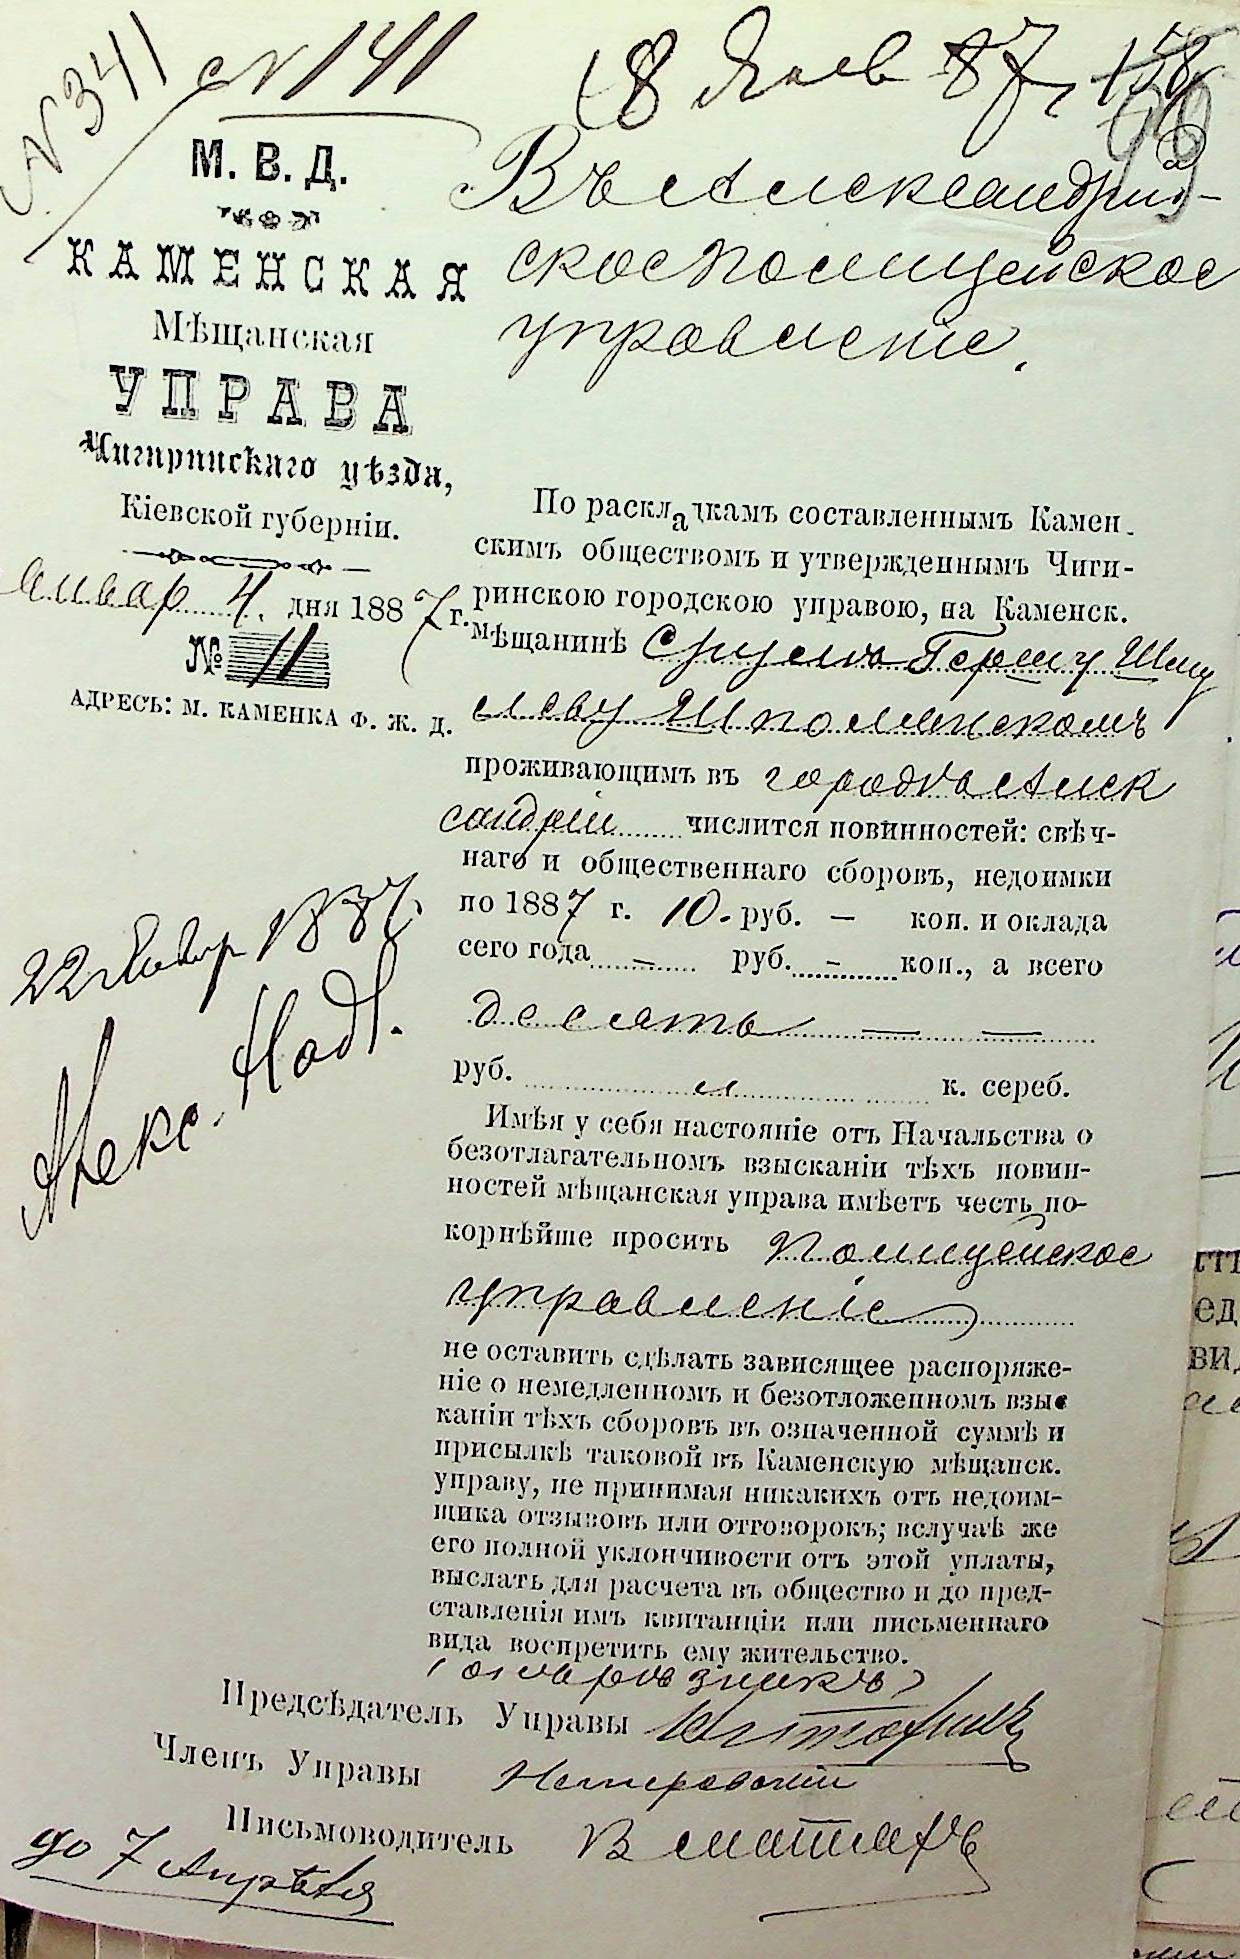 N 341
№ 141
18 Янв 87
158
99
М. В. Д.
КАМЕНСКАЯ
Мѣщанская
УПРАВА
Чигиринскаго уѣзда,
Кіевской губерніи.
Январ 4. дня 1887 г.
№ 11
АДРЕСЪ: М. КАМЕНКА Ф. Ж. Д.
Въ Александрій-
ское Полицейское
управленіе.
По раскладкамъ составленнымъ Камен-
скимъ обществомъ и утвержденнымъ Чиги-
ринскою городскою управою, на Каменск.
мѣщанинѣ Сруль Гершу Шму
леву Шполянскомъ
проживающимъ въ городѣ Алек
сандріи числится повинностей: свѣч-
наго и общественнаго сборовъ, недоимки
по 1887 г. 10. руб. — коп. и оклада
сего года — руб. — коп., а всего
десять — —
руб. к. сереб.
Имѣя у себя настояніе отъ Начальства о
безотлагательномъ взысканіи тѣхъ повин-
ностей мѣщанская управа имѣетъ честь по-
корнѣйше просить Полицейское
управленіе
не оставить сдѣлать зависящее распоряже-
ніе о немедленномъ и безотложенномъ взыс
каніи тѣхъ сборовъ въ означенной суммѣ и
присылкѣ таковой въ Каменскую мѣщанск.
управу, не принимая никакихъ отъ недоим-
щика отзывовъ или отговорокъ; вслучаѣ же
его полной уклончивости отъ этой уплаты,
выслать для расчета въ общество и до пред-
ставленія имъ квитанціи или письменнаго
вида воспретить ему жительство.
22 Январ 1887.
Алекс. Над.
Предсѣдатель Управы
Членъ Управы
Письмоводитель
до 7 Апрѣля